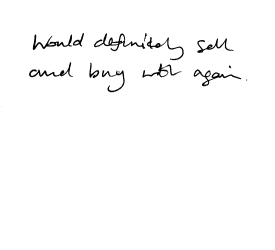 Would definitely sell
and buy with again.